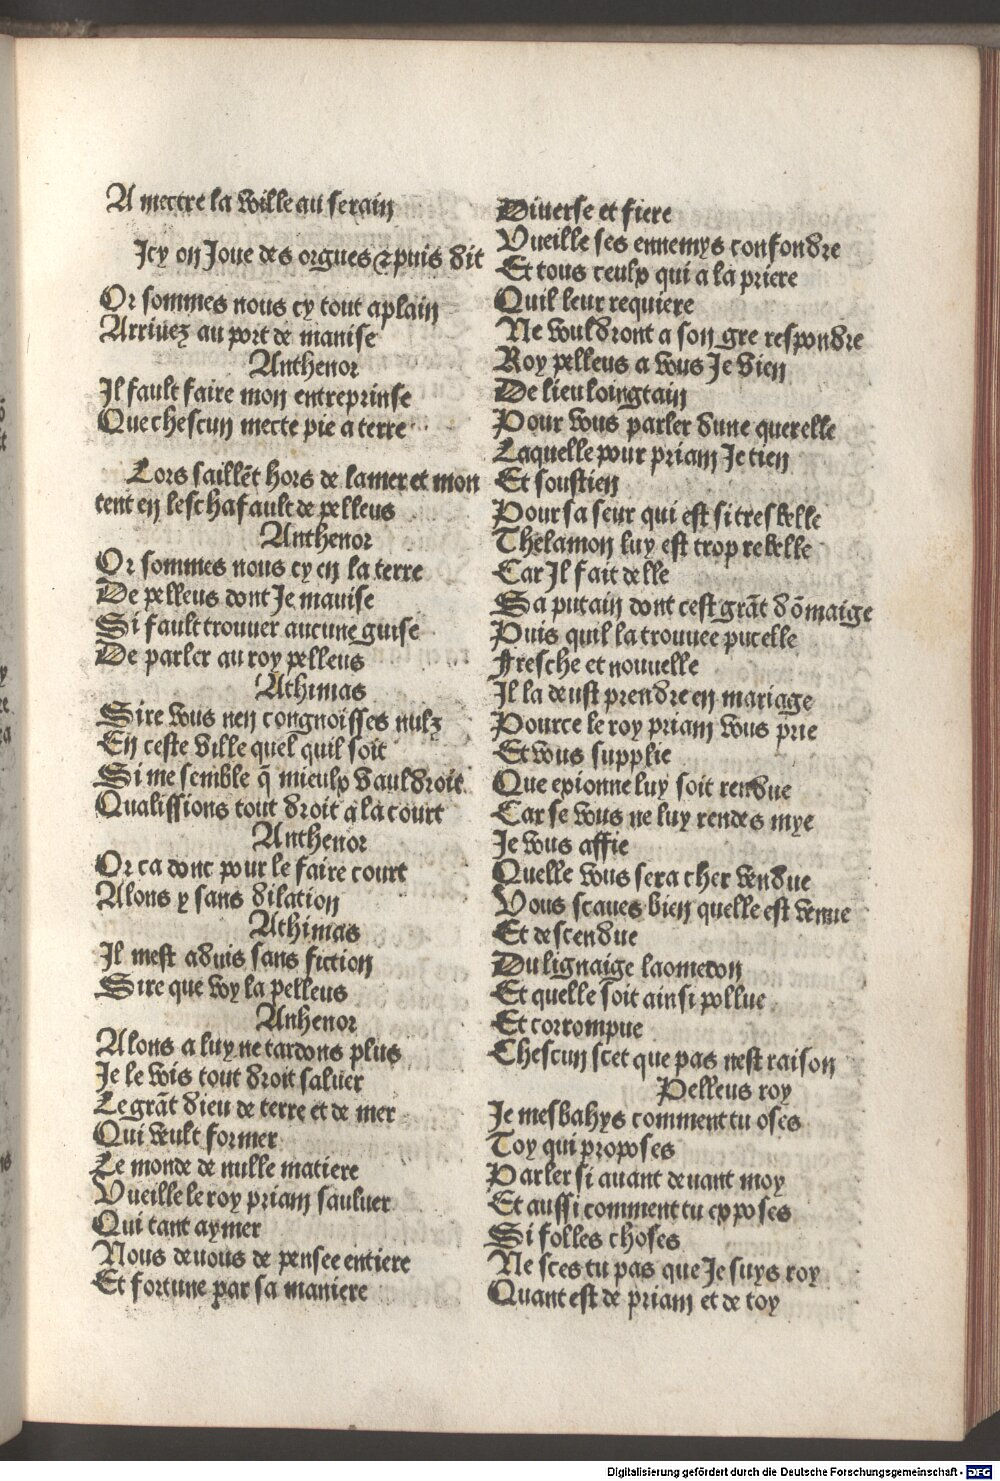 A mectre la ville au serain
Icy on Ioue des orgues ⁊ puis dit
Or sommes nous cy tout aplain
Arriuez au port de manise
Anthenor
Il fault faire mon entreprinse
Que chescun mecte pie a terre
Lors saillēt hors de la mer et mon
tent en leschafault de pelleus
Anthenor
Or sommes nous cy en la terre
De pelleus dont Ie mauise
Si fault trouuer aucune guise
De parler au roy pelleus
Athimas
Sire vous nen congnoisses nulz
En ceste ville quel quil soit
Si me semble q̄ mieulx vauldroit
Qualissions tout droit a la court
Anthenor
Or ca donc pour le faire court
Alons y sans dilation
Athimas
Il mest aduis sans fiction
Sire que voy la pelleus
Anhenor
Alons a luy ne tardons plus
Ie le vois tout droit saluer
Le grāt dieu de terre et de mer
Qui veult former
Le monde de nulle matiere
Vueille le roy priam sauluer
Qui tant aymer
Nous deuons de pensee entiere
Et fortune par sa maniere
Diuerse et fiere
Vueille ses ennemys confondre
Et tous ceulx qui a la priere
Quil leur requiere
Ne vouldront a son gre respondre
Roy pelleus a vous Ie vien
De lieu loingtain
Pour vous parler dune querelle
Laquelle pour priam Ie tien
Et soustien
Pour sa seur qui est si tresbelle
Thelamon luy est trop rebelle
Car Il fait delle
Sa putain dont cest grāt dōmaige
Puis quil la trouuee pucelle
Fresche et nouuelle
Il la deust prendre en mariage
Pource le roy priam vous prie
Et vous supplie
Que exionne luy soit rendue
Car se vous ne luy rendes mye
Ie vous affie
Quelle vous sera cher vendue
Vous scaues bien quelle est venue
Et descendue
Du lignaige laomedon
Et quelle soit ainsi pollue
Et corrompue
Chescun scet que pas nest raison
Pelleus roy
Ie mesbahys comment tu oses
Toy qui proposes
Parler si auant deuant moy
Et aussi comment tu exposes
Si folles choses
Ne sces tu pas que Ie suys roy
Quant est de priam et de toy
Digitalisierung gefördert durch die Deutsche Forschungsgemeinschaft - DFG